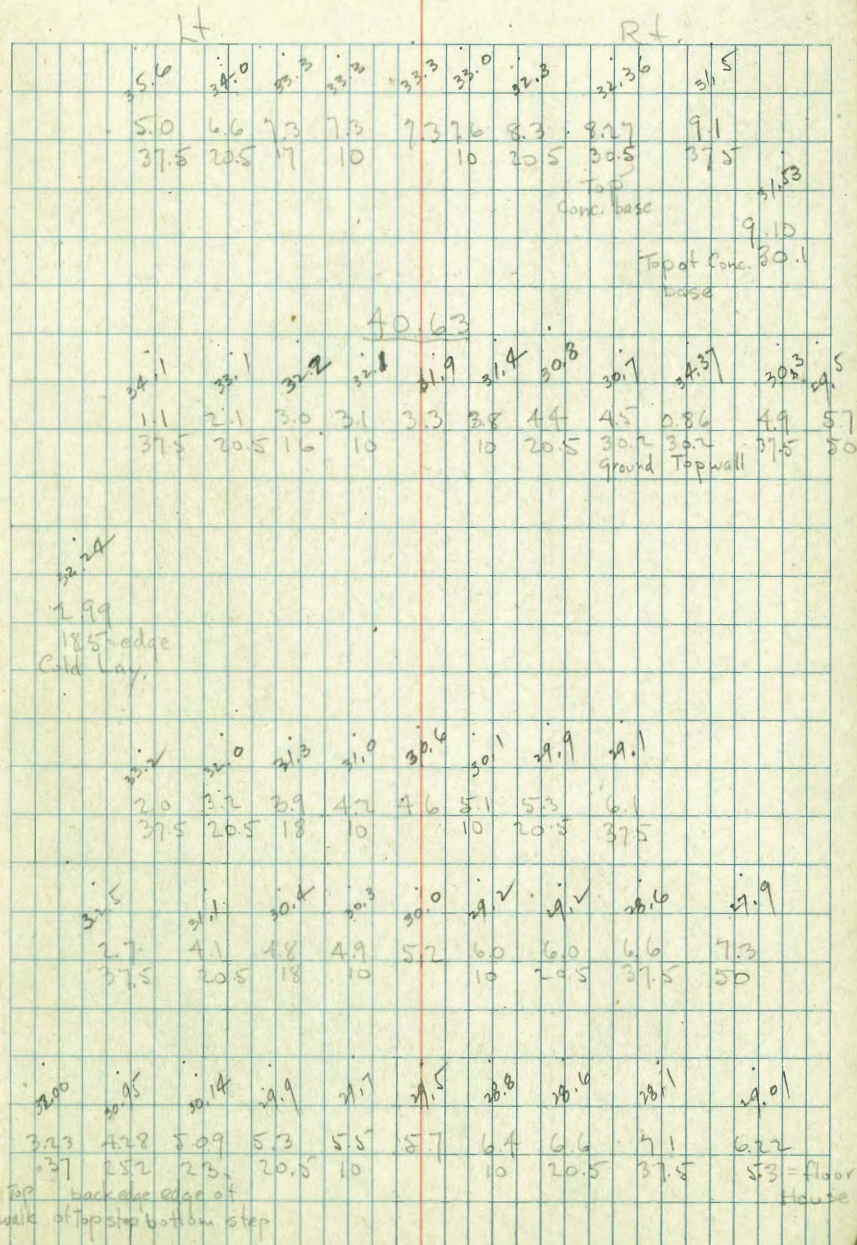 Lt. Rt.
35.6 34.0 33.3 33.3 33.3 33.0 32.3 32.36 31.5
5.0 6.6 7.3 7.3 7.3 7.6 8.3 8.27 9.1
37.5 20.5 17 10 10 20.5 30.5 37.5
Top
Conc. base
31.53
9.10
Top of Conc. 30.1
base
40.63
34.1 33.1 32.2 32.1 31.9 31.4 30.8 30.7 34.37 30.3 29.5
1.1 2.1 3.0 3.1 3.3 3.8 4.4 4.5 0.86 4.9 5.7
37.5 20.5 16 10 10 20.5 30.2 30.2 37.5 50
Ground Top wall
32.24
2.99
18.5-edge
Cold Lay.
33.2 32.0 31.3 31.0 30.6 30.1 29.9 29.1
2.0 3.2 3.9 4.2 4.6 5.1 5.3 6.1
37.5 20.5 18 10 10 20.5 37.5
32.5 31.1 30.4 30.3 30.0 29.2 29.2 28.6 27.9
2.7 4.1 4.8 4.9 5.2 6.0 6.0 6.6 7.3
37.5 20.5 18 10 10 20.5 37.5 50
32.00 30.95 30.14 29.9 29.7 29.5 28.8 28.6 28.1 29.01
3.23 4.28 5.09 5.3 5.5 5.7 6.4 6.6 7.1 6.22
37 25.2 23. 20.5 10 10 20.5 37.5 53 = floor
Top back edge edge of House
walk of Top step bottom step